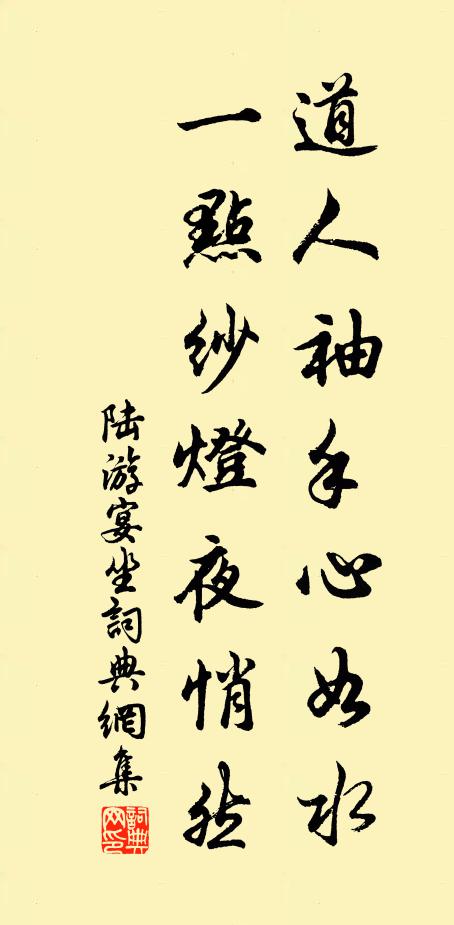 道人袖手心如水
一點紗燈夜悄然
陆游宴坐詞典網集
詞典网印